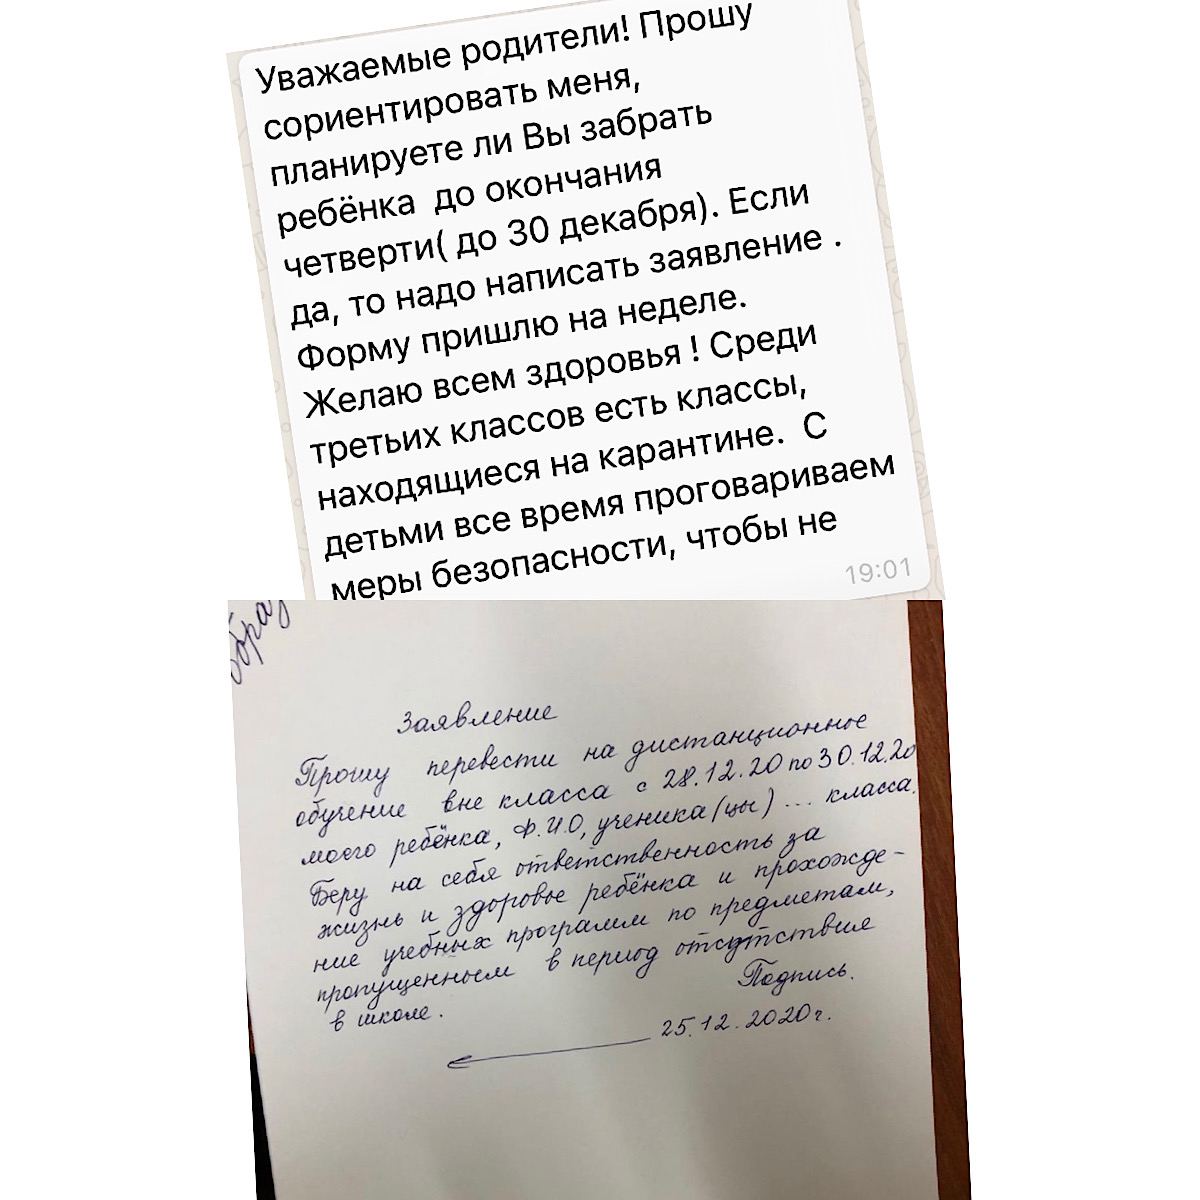 Уважаемые родители! Прошу
сориентировать меня,
планируете ли Вы забрать
ребёнка до окончания
четверти( до 30 декабря). Если
да, то надо написать заявление .
Форму пришлю на неделе.
Желаю всем здоровья ! Среди
третьих классов есть классы,
находящиеся на карантине. С
детьми все время проговариваем
меры безопасности, чтобы не
19:01
Заявление
Прошу перевести на дистанционное
обучение вне класса с 28.12.20 по 30.12.20
моего ребёнка, Ф.И.О, ученика/цы) ... класса.
Беру на себя ответственность за
жизнь и здоровье ребёнка и прохожде-
ние учебных программ по предметам,
пропущенным в период отсутствия
в школе.
Подпись.
25.12.2020г.